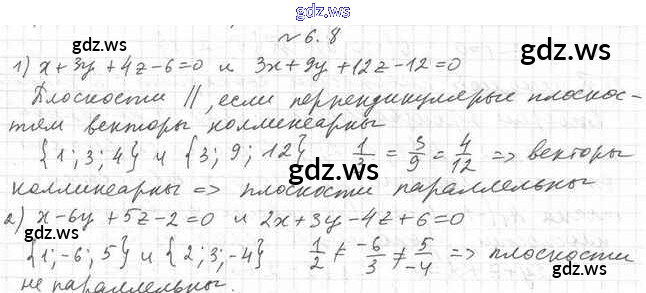 gdz.ws
№6.8
gdz.ws gdz.ws
1) x+3y+4z-6=0 и 3x+9y+12z-12=0
Плоскости ||, если перпендикулярые плоскос-
тям векторы коллинеарны
{1; 3; 4} и {3; 9; 12} 1/3 = 3/9 = 4/12 => векторы
gdz.ws
коллинеарны => плоскости параллельны
2) x-6y+5z-2=0 и 2x+3y-4z+6=0
{1; -6; 5} и {2; 3; -4} 1/2 ≠ -6/3 ≠ 5/-4 => плоскости
не параллельны.
gdz.ws gdz.ws